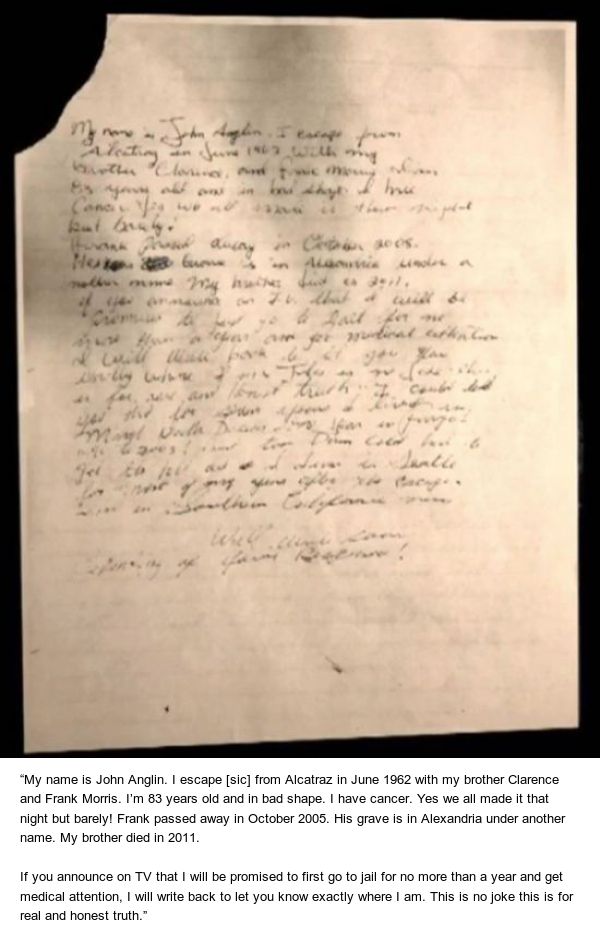 My name is John Anglin. I escape from
Alcatraz in June 1962 with my
brother Clarence, and Frank Morris I'm
83 years old and in bad shape. I have
Cancer. Yes we all made it that night
but barely!
Frank passed away in October
His is in Alexandria under a
nother name. My brother died in 2011.
If you announce on TV that I will be
promised to first go to jail for no
more than a year and get medical attention
I will write back to let you know
exactly where I am. This is no joke this
is for real and honest truth. I could tell
you that for seven years I lived in
North Dakota
Seattle
for most of my years after the escape.
in Southern California now
“My name is John Anglin. I escape [sic] from Alcatraz in June 1962 with my brother Clarence
and Frank Morris. I’m 83 years old and in bad shape. I have cancer. Yes we all made it that
night but barely! Frank passed away in October 2005. His grave is in Alexandria under another
name. My brother died in 2011.
If you announce on TV that I will be promised to first go to jail for no more than a year and get
medical attention, I will write back to let you know exactly where I am. This is no joke this is for
real and honest truth.”